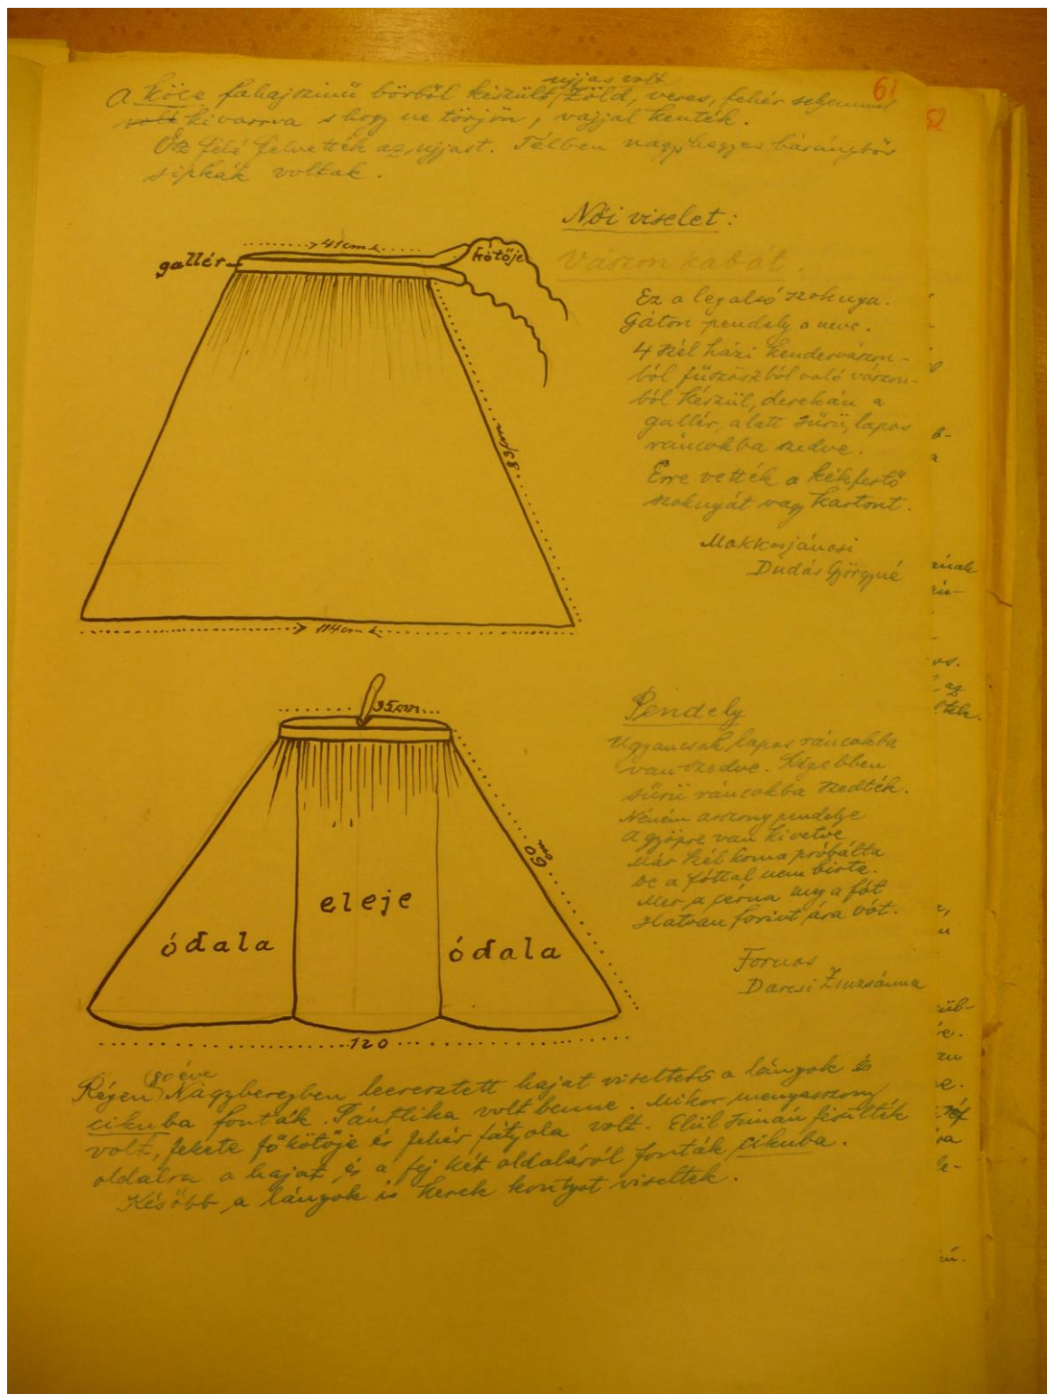 61
ujjas volt
A köce fahajszinű bőrből készült, zöld, veres, fehér selyemmel
volt kivarrva s hogy ne törjön, vajjal kenték.
Ősz felé felvették az ujjast. Télben nagy hegyes báránybőr
sipkák voltak.
52
Női viselet:
Vászon kabát.
41 cm
gallér
kötője
Ez a legalsó szoknya.
Gáton pendely a neve.
4 szél házi kendervászon-
ból való vászon-
ból készül, derekán a
gallér, alatt sűrű, lapos
ráncokba szedve.
Erre vették a kékfestő
szoknyát vagy kartont.
83 cm
Makkosjánosi
Dudás Györgyné
114 cm
35 cm
Pendely
Ugyancsak lapos ráncokba
van szedve. Régebben
sűrű ráncokba szedték.
Néném asszony pendelye
A gyöpre van kivetve
Már két koma próbálta
De a fóttal nem birta.
Mer a cérna meg a fót
Hatvan forint ára vót.
60 cm
eleje
ódala
ódala
Fornos
Darcsi Zsuzsánna
120
80 éve
Régen Nagyberegben leeresztett hajat viseltek a lányok és
cikuba fonták. Pántlika volt benne. Mikor menyasszony
volt, fekete főkötője és fehér fátyola volt. Elül simán fésülték
oldalra a hajat és a fej két oldaláról fonták cikuba.
Később a lányok is kerek kontyot viseltek.